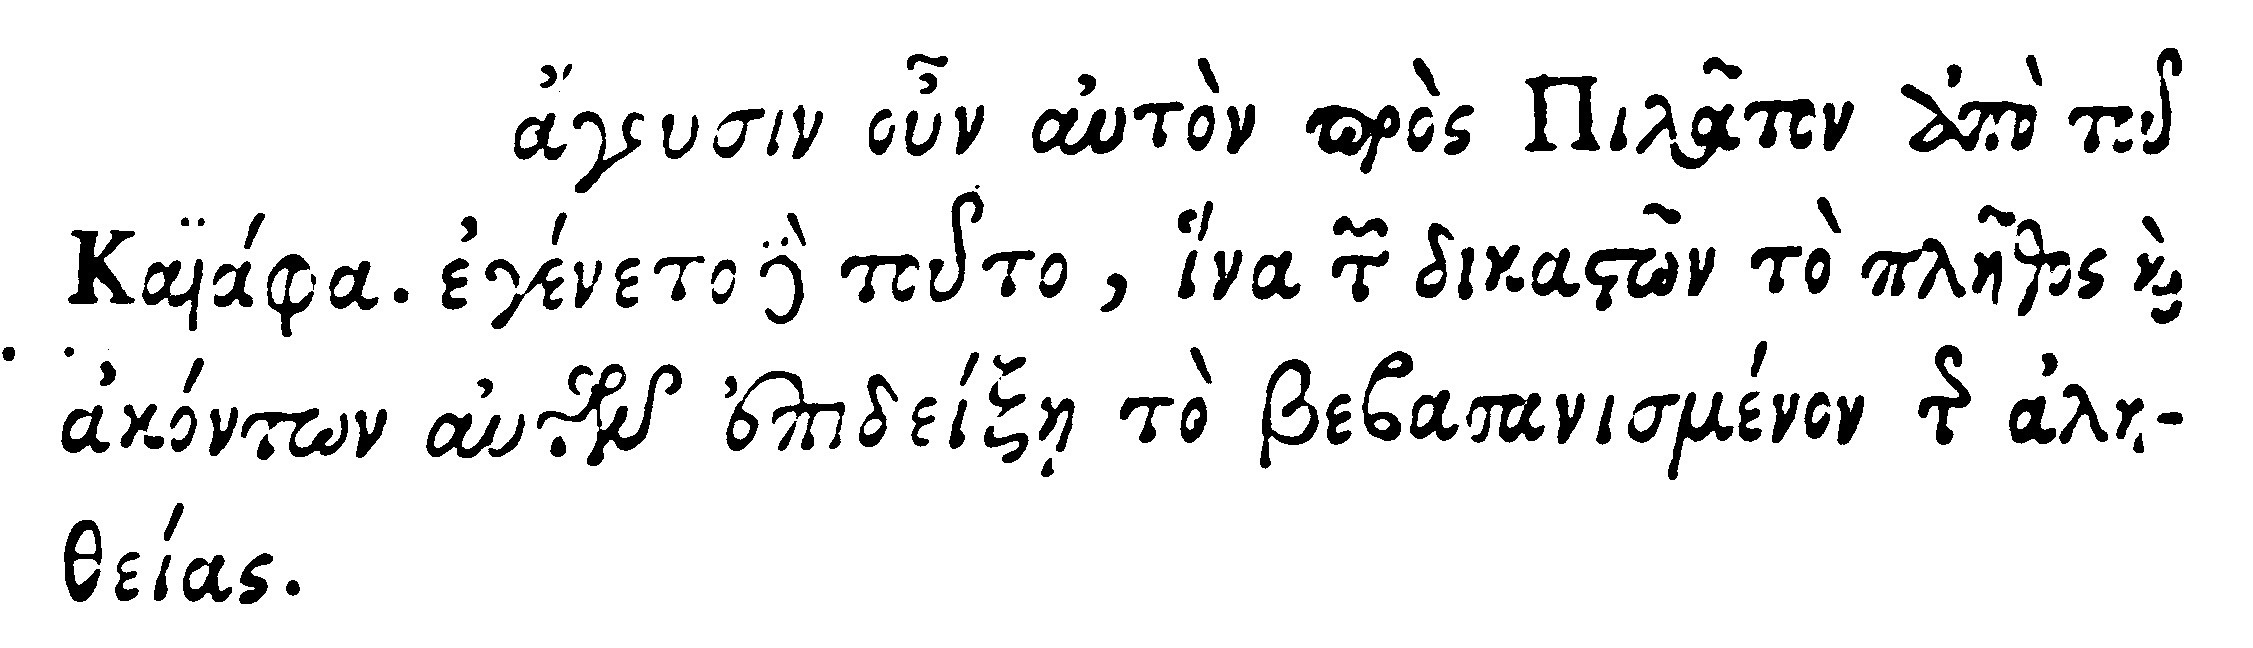 ἄγουσιν οὖν αὐτὸν πρὸς Πιλᾶτον ἀπὸ τοῦ
Καϊάφα. ἐγένετο δὲ τοῦτο, ἵνα τῶν δικαστῶν τὸ πλῆθος καὶ
ἀκόντων αὐτῶν ἐπιδείξῃ τὸ βεβασανισμένον τῆς ἀλη-
θείας.